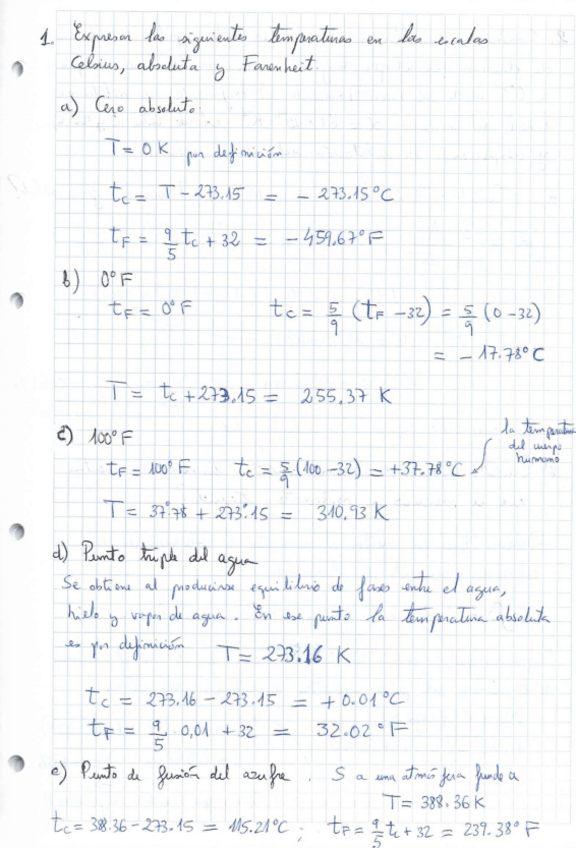 1. Expresar las siguientes temperaturas en las escalas
Celsius, absoluta y Farenheit.
a) Cero absoluto.
T = 0 K por definición
tc = T - 273.15 = - 273.15°C
tF = 9/5 tc + 32 = - 459.67°F
b) 0°F
tF = 0°F tc = 5/9 (tF - 32) = 5/9 (0 - 32)
= - 17.78°C
T = tc + 273.15 = 255.37 K
c) 100°F
la temperatura
del cuerpo
humano
tF = 100°F tc = 5/9 (100 - 32) = +37.78°C
T = 37.78 + 273.15 = 310.93 K
d) Punto triple del agua
Se obtiene al producirse equilibrio de fases entre el agua,
hielo y vapor de agua. En ese punto la temperatura absoluta
es por definición T = 273.16 K
tc = 273.16 - 273.15 = +0.01°C
tF = 9/5 0,01 + 32 = 32.02°F
e) Punto de fusión del azufre. S a una atmósfera funde a
T = 388.36 K
tc = 388.36 - 273.15 = 115.21°C; tF = 9/5 tc + 32 = 239.38°F